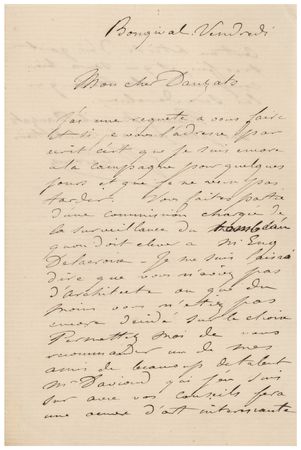 Bougival. Vendredi
Mon cher Dauzats
J'ai une requête a vous faire
Et si je vous l'adresse par
ecrit c'est que je suis encore
a la campagne pour quelques
jours et que je ne veux pas
tarder. Vous faites partie
d'une commission chargée de
la surveillance du tombeau
qu'on doit elever a Mr Eug
Delacroix - Je me suis laissé
dire que vous n'aviez pas
d'architecte ou que du
moins vous n'etiez pas
encore décidé sur le choix
Permettez moi de vous
recommander un de mes
amis de beaucoup de talent
Mr Davioud qui j'en suis
sur avec vos conseils fera
une œuvre d'art interessante